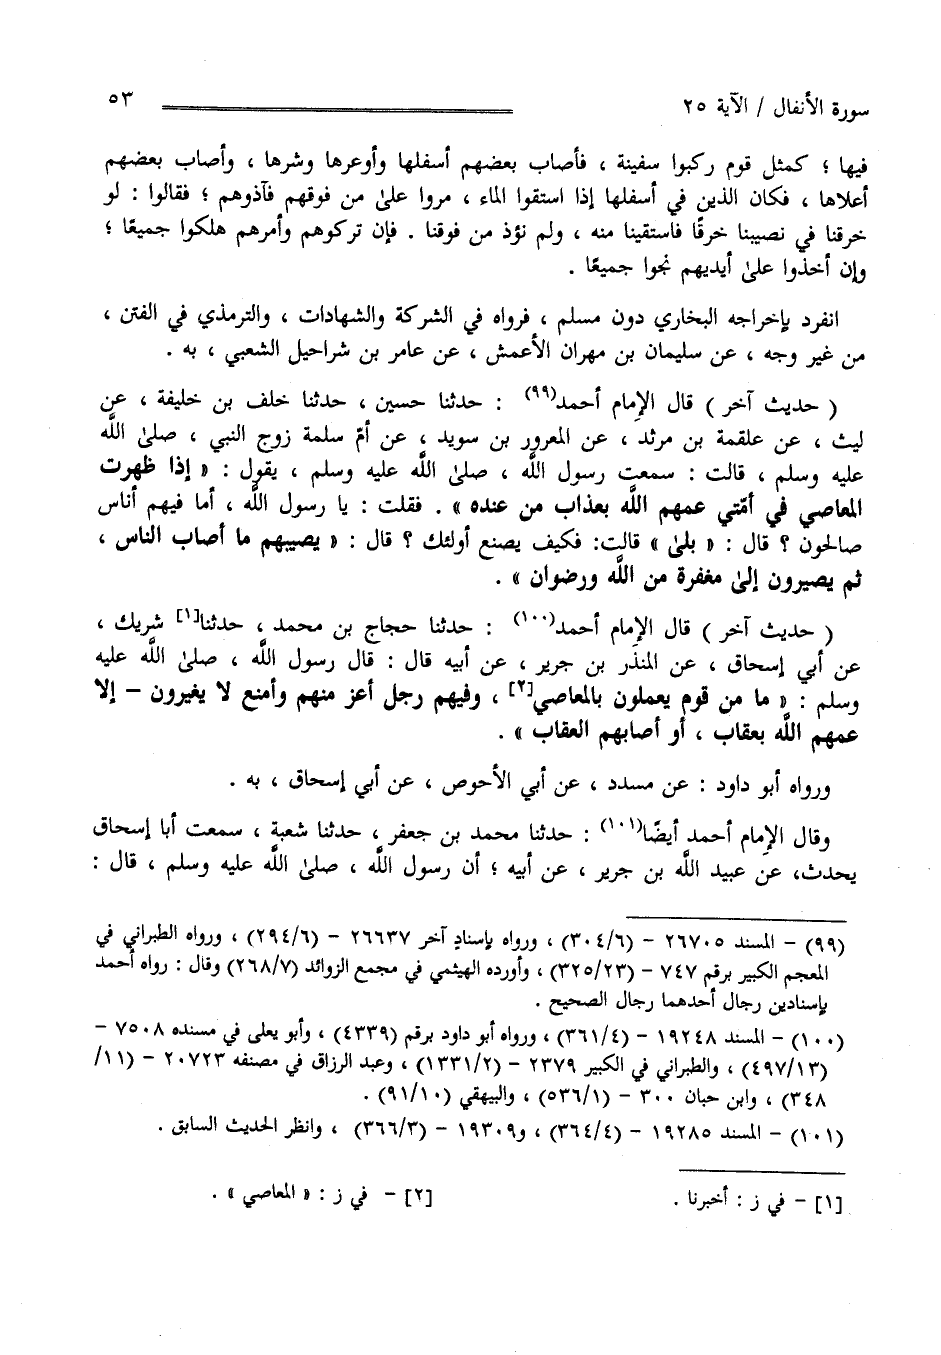 سورة الأنفال / الآية ٢٥
٥٣
فيها ؛ كمثل قوم ركبوا سفينة ، فأصاب بعضهم أسفلها وأوعرها وشرها ، وأصاب بعضهم
أعلاها ، فكان الذين في أسفلها إذا استقوا الماء ، مروا علىٰ من فوقهم فآذوهم ؛ فقالوا : لو
خرقنا في نصيبنا خرقًا فاستقينا منه ، ولم نؤذ من فوقنا . فإن تركوهم وأمرهم هلكوا جميعًا ؛
وإن أخذوا علىٰ أيديهم نجوا جميعًا .
انفرد بإخراجه البخاري دون مسلم ، فرواه في الشركة والشهادات ، والترمذي في الفتن ،
من غير وجه ، عن سليمان بن مهران الأعمش ، عن عامر بن شراحيل الشعبي ، به .
( حديث آخر ) قال الإمام أحمد(٩٩) : حدثنا حسين ، حدثنا خلف بن خليفة ، عن
ليث ، عن علقمة بن مرثد ، عن المعرور بن سويد ، عن أمّ سلمة زوج النبي ، صلىٰ الله
عليه وسلم ، قالت : سمعت رسول اللَّه ، صلىٰ اللَّه عليه وسلم ، يقول : « إذا ظهرت
المعاصي في أمّتي عمهم اللَّه بعذاب من عنده » . فقلت : يا رسول اللَّه ، أما فيهم أناس
صالحون ؟ قال : « بلىٰ » قالت: فكيف يصنع أولئك ؟ قال : « يصيبهم ما أصاب الناس ،
ثم يصيرون إلىٰ مغفرة من اللَّه ورضوان » .
( حديث آخر ) قال الإمام أحمد(١٠٠) : حدثنا حجاج بن محمد ، حدثنا[١] شريك ،
عن أبي إسحاق ، عن المنذر بن جرير ، عن أبيه قال : قال رسول اللَّه ، صلىٰ اللَّه عليه
وسلم : « ما من قوم يعملون بالمعاصي[٢] ، وفيهم رجل أعز منهم وأمنع لا يغيرون – إلا
عمهم اللَّه بعقاب ، أو أصابهم العقاب » .
ورواه أبو داود : عن مسدد ، عن أبي الأحوص ، عن أبي إسحاق ، به .
وقال الإمام أحمد أيضًا(١٠١) : حدثنا محمد بن جعفر ، حدثنا شعبة ، سمعت أبا إسحاق
يحدث، عن عبيد اللَّه بن جرير ، عن أبيه ؛ أن رسول اللَّه ، صلىٰ اللَّه عليه وسلم ، قال :
(٩٩) – المسند ٢٦٧٠٥ – (٣٠٤/٦) ، ورواه بإسنادٍ آخر ٢٦٦٣٧ – (٢٩٤/٦) ، ورواه الطبراني في
المعجم الكبير برقم ٧٤٧ – (٣٢٥/٢٣) ، وأورده الهيثمي في مجمع الزوائد (٢٦٨/٧) وقال : رواه أحمد
بإسنادين رجال أحدهما رجال الصحيح .
(١٠٠) – المسند ١٩٢٤٨ – (٣٦١/٤) ، ورواه أبو داود برقم (٤٣٣٩) ، وأبو يعلى في مسنده ٧٥٠٨ –
(٤٩٧/١٣) ، والطبراني في الكبير ٢٣٧٩ – (١٣٣١/٢) ، وعبد الرزاق في مصنفه ٢٠٧٢٣ – (١١/
٣٤٨) ، وابن حبان ٣٠٠ – (٥٣٦/١) ، والبيهقي (٩١/١٠) .
(١٠١) – المسند ١٩٢٨٥ – (٣٦٤/٤) ، و١٩٣٠٩ – (٣٦٦/٣) ، وانظر الحديث السابق .
[١] – في ز : أخبرنا .
[٢] – في ز : « المعاصي » .